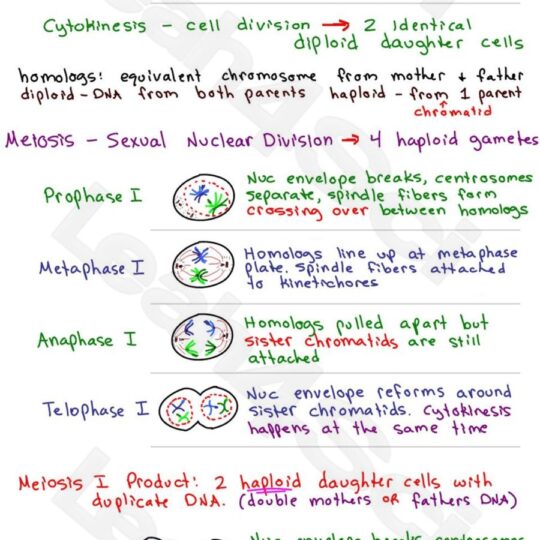 Cytokinesis - cell division → 2 identical
diploid daughter cells
homologs: equivalent chromosome from mother + father
diploid - DNA from both parents haploid - from 1 parent
chromatid
Meiosis - Sexual Nuclear Division → 4 haploid gametes
Prophase I
Nuc envelope breaks, centrosomes
separate, spindle fibers form
crossing over between homologs
Metaphase I
Homologs line up at metaphase
plate. Spindle fibers attached
to kinetchores
Anaphase I
Homologs pulled apart but
sister chromatids are still
attached
Telophase I
Nuc envelope reforms around
sister chromatids. Cytokinesis
happens at the same time
Meiosis I Product: 2 haploid daughter cells with
duplicate DNA. (double mothers OR fathers DNA)
Nuc envelope breaks, centrosomes